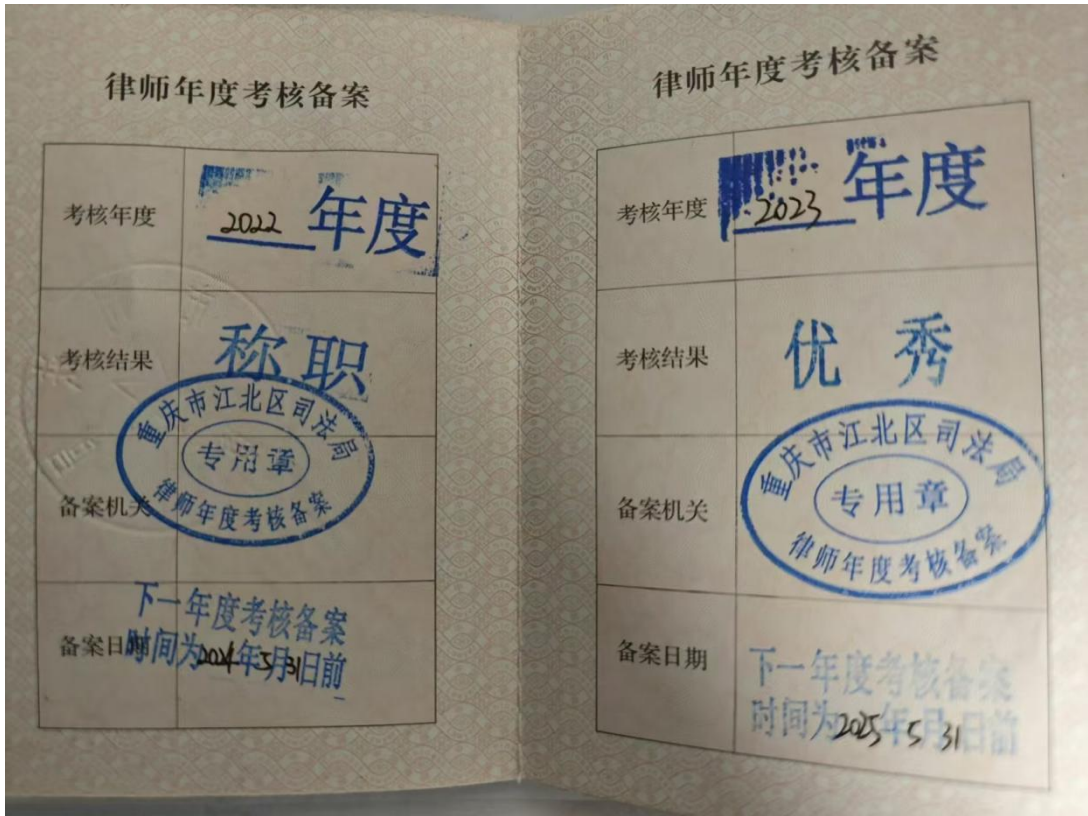 律师年度考核备案
考核年度
2022年度
考核结果
称职
重庆市江北区司法局
专用章
律师年度考核备案
备案机关
备案日期
下一年度考核备案
时间为2024年5月31日前
律师年度考核备案
考核年度
2023年度
考核结果
优秀
重庆市江北区司法局
专用章
律师年度考核备案
备案机关
备案日期
下一年度考核备案
时间为2025年5月31日前